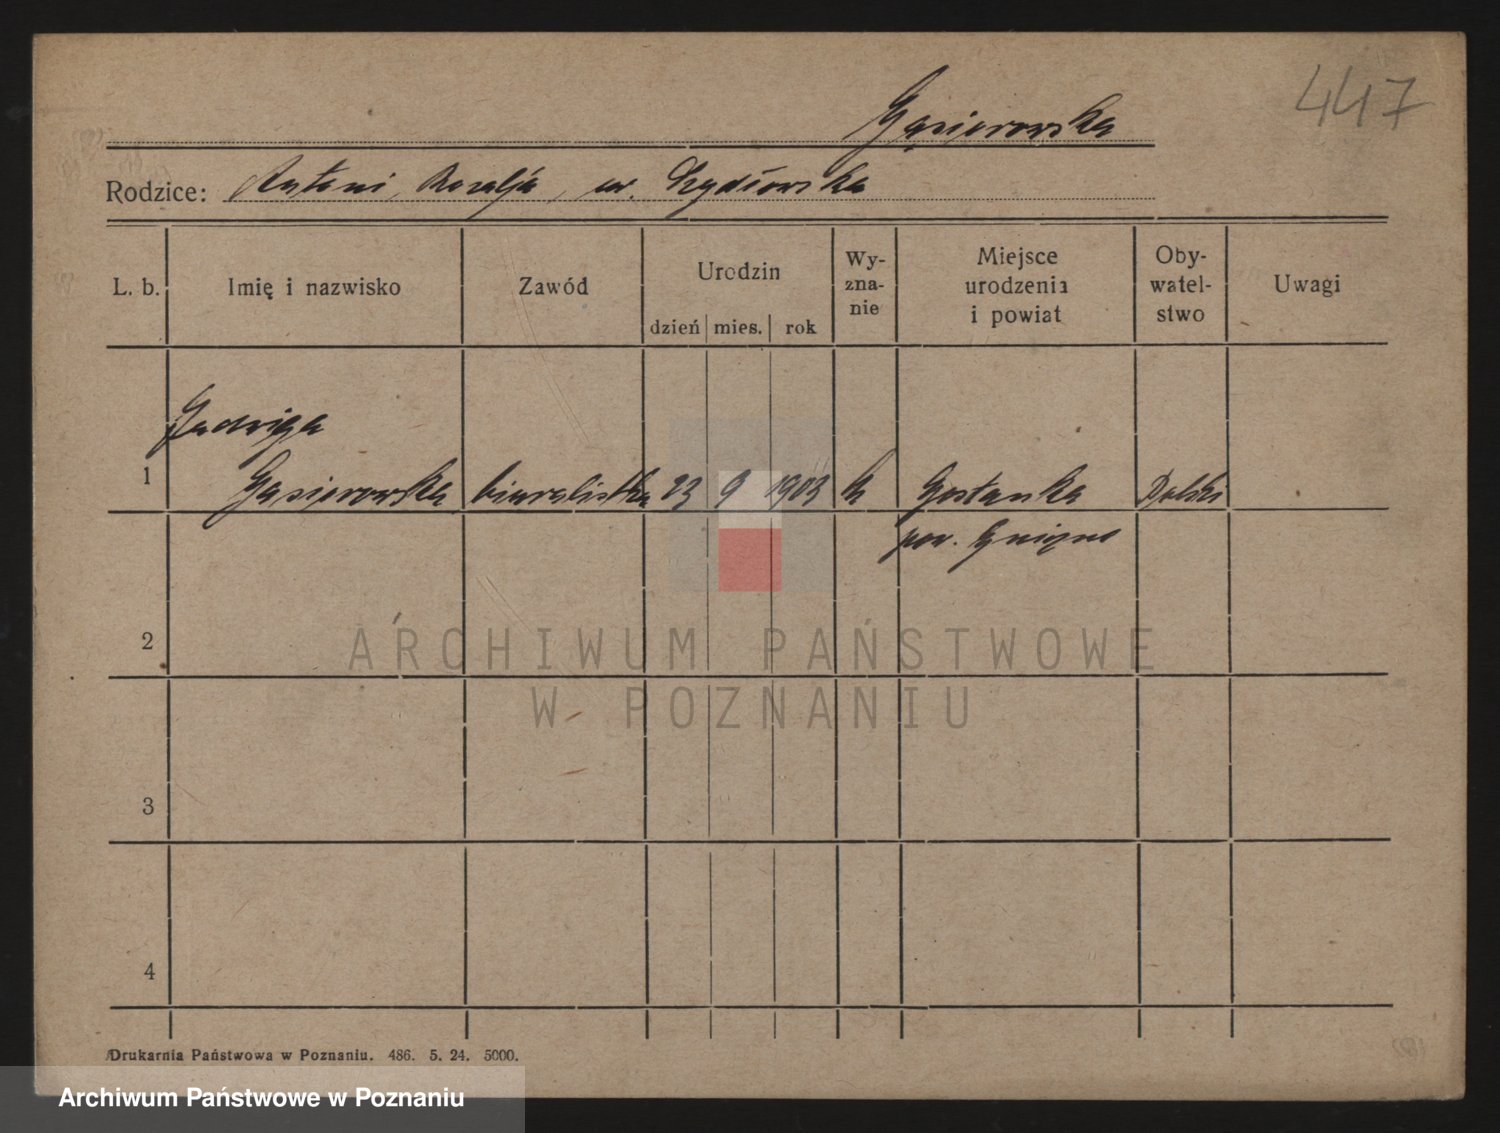 447
Gąsiorowska
Rodzice: Antoni, Rozalja, ur. Szydłowska
L. b. Imię i nazwisko Zawód Urodzin dzień mies. rok Wy-zna-nie Miejsce urodzenia i powiat Oby-watel-stwo Uwagi
Jadwiga
1 Gąsiorowska biuralistka 23 9 1903 k Gostanka Polska
pow. Gniezno
2
ARCHIWUM PAŃSTWOWE
W POZNANIU
3
4
Drukarnia Państwowa w Poznaniu. 486. 5. 24. 5000.
Archiwum Państwowe w Poznaniu